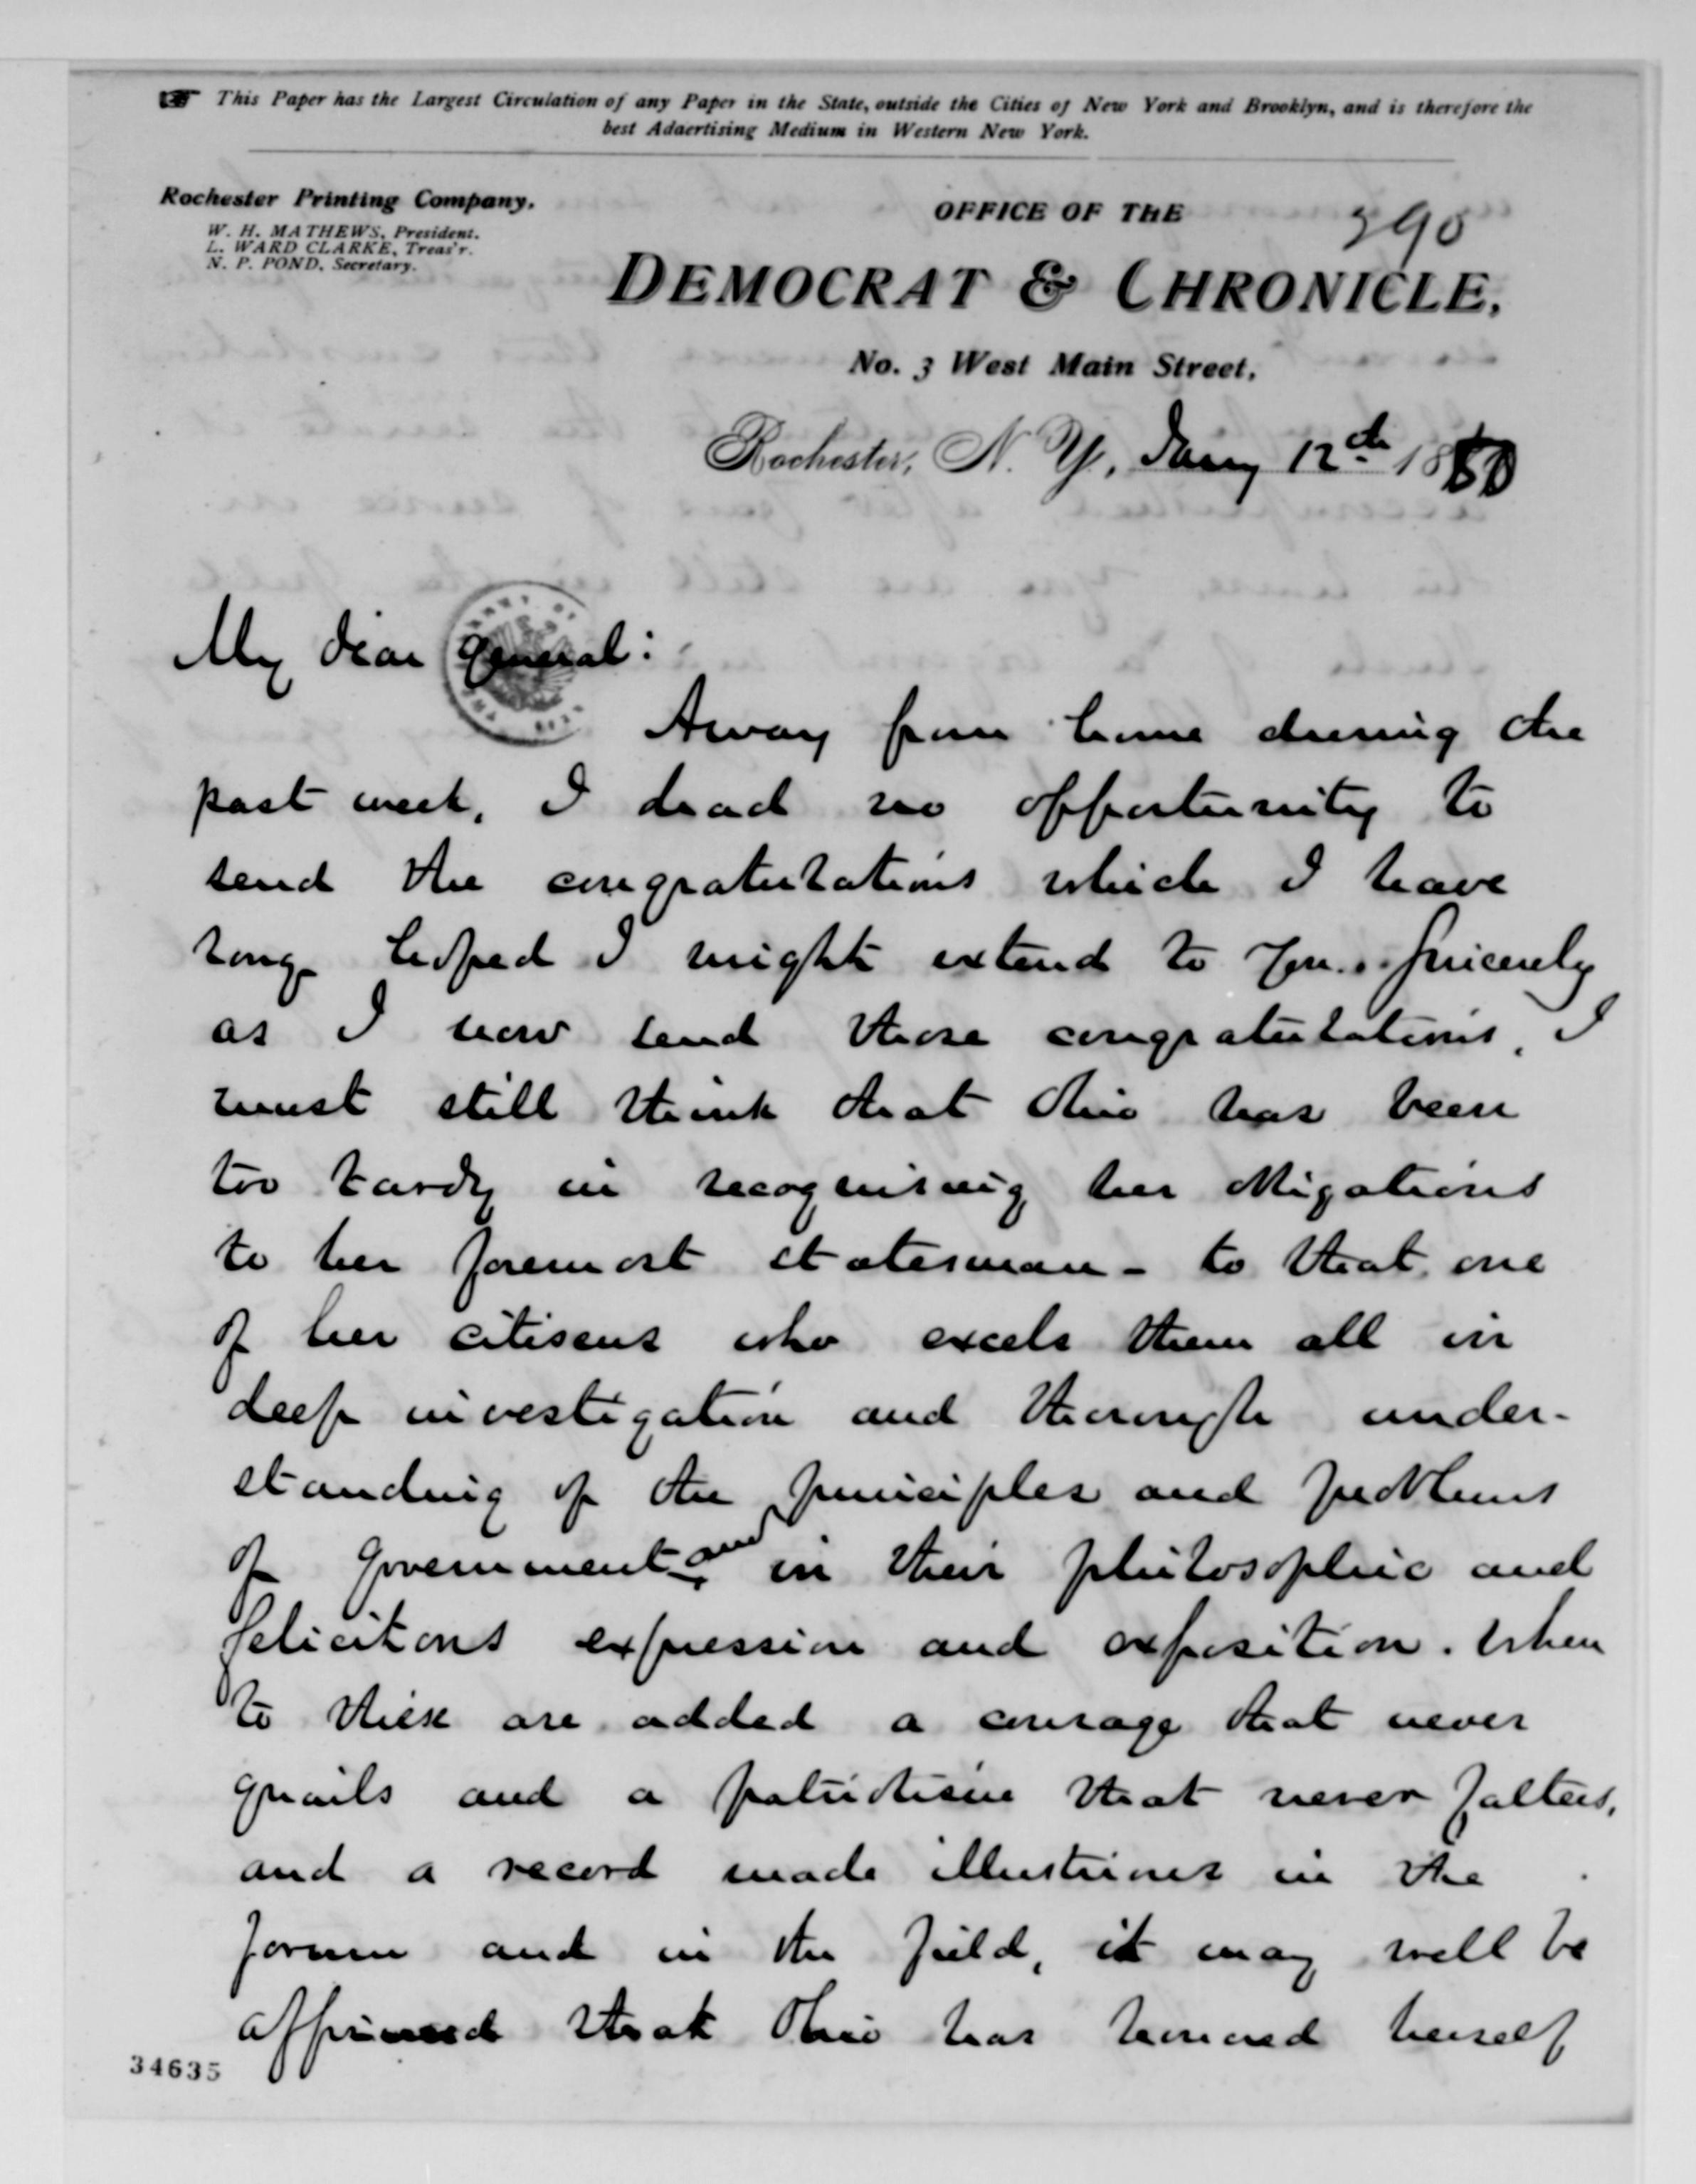 ☞ This Paper has the Largest Circulation of any Paper in the State, outside the Cities of New York and Brooklyn, and is therefore the
best Adaertising Medium in Western New York.
Rochester Printing Company.
W. H. MATHEWS, President.
L. WARD CLARKE, Treas'r.
N. P. POND, Secretary.
OFFICE OF THE
390
DEMOCRAT & CHRONICLE,
No. 3 West Main Street.
Rochester, N. Y., Jany 12th 1880
My dear General:
Away from home during the
past week, I had no opportunity to
send the congratulations which I have
long hoped I might extend to you. Sincerely
as I now send those congratulations, I
must still think that Ohio has been
too tardy in recognising her obligations
to her foremost statesman - to that one
of her citisens who excels them all in
deep investigation and thorough under-
standing of the principles and problems
of government and in their philosophic and
felicitous expression and exposition. When
to these are added a courage that never
quails and a patriotism that never falters,
and a record made illustrious in the
forum and in the field, it may well be
affirmed that Ohio has honored herself
34635